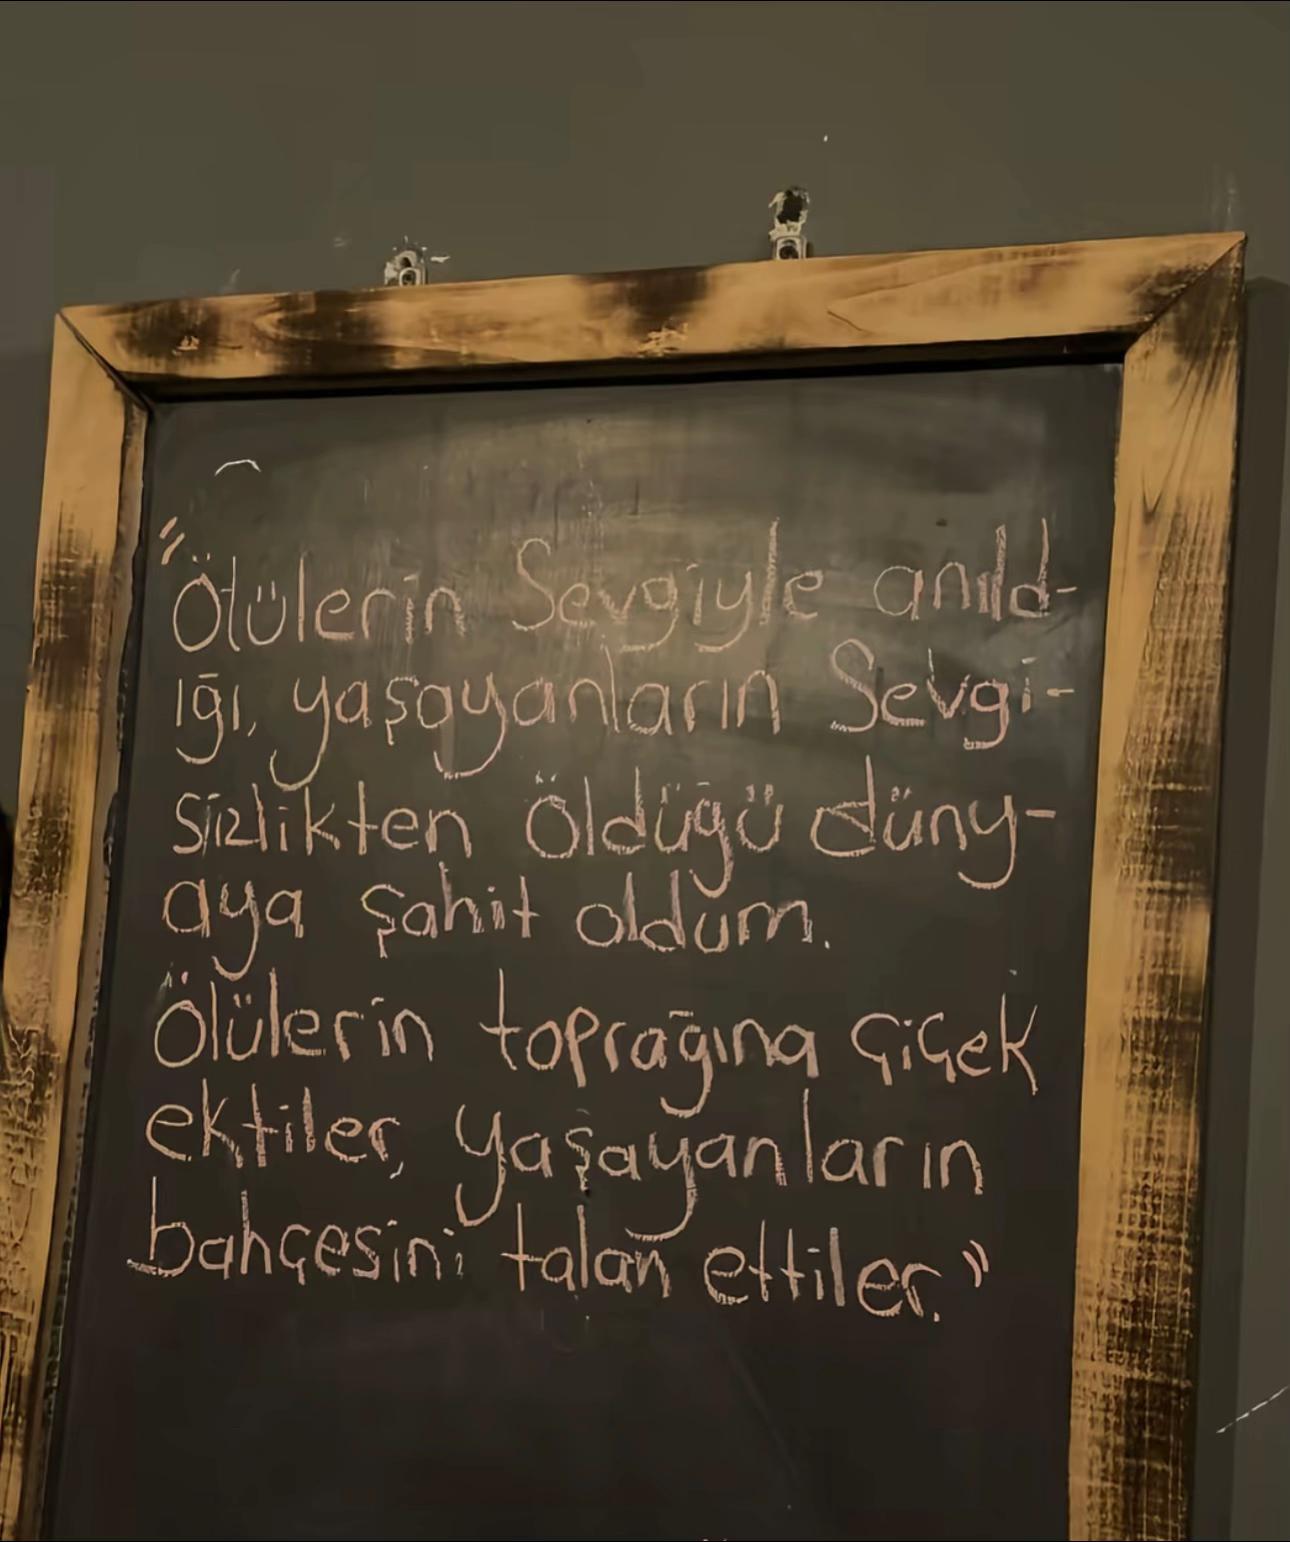 "Ölülerin Sevgiyle anıld-
ığı, yaşayanların Sevgi-
sizlikten öldüğü düny-
aya şahit oldum.
Ölülerin toprağına çiçek
ektiler, yaşayanların
bahçesini talan ettiler."